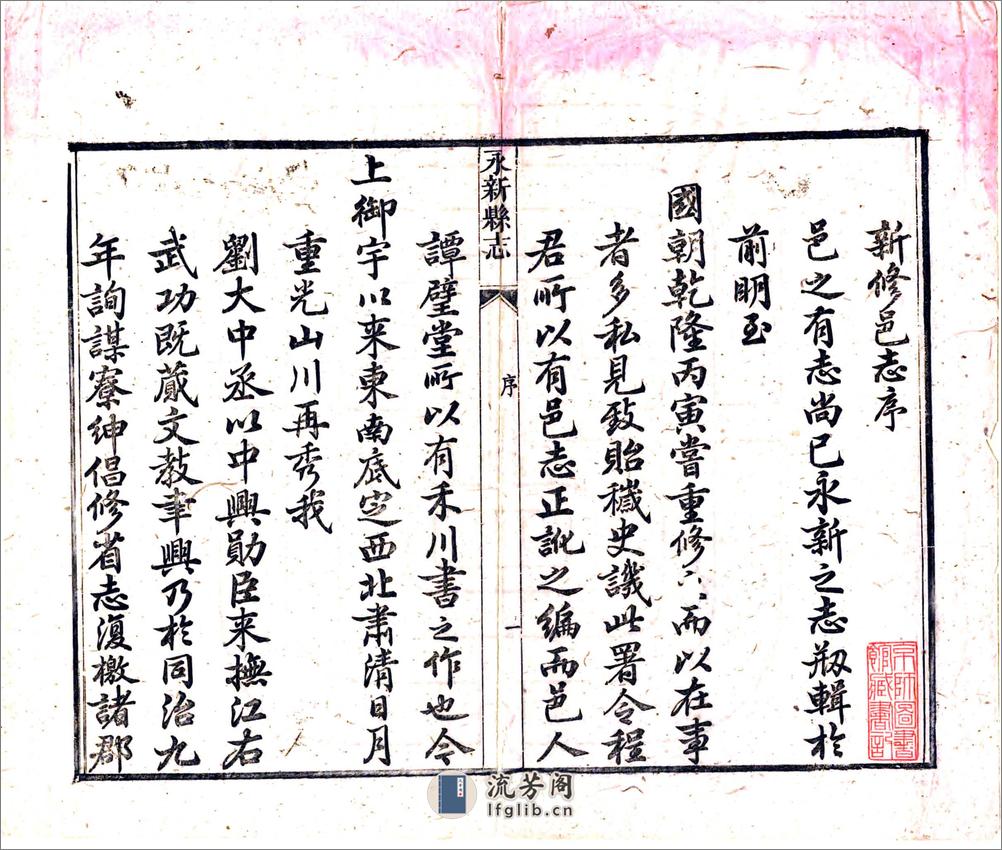 新修邑志序
邑之有志尚已永新之志刱輯於
前明至
國朝乾隆丙寅嘗重修〻而以在事
者多私見致貽穢史譏此署令程
君所以有邑志正訛之編而邑人
永新縣志
序
一
譚璧堂所以有禾川書之作也今
上御宇以來東南底定西北肅清日月
重光山川再秀我
劉大中丞以中興勛臣來撫江右
武功既蕆文教聿興乃於同治九
年詢謀寮紳倡修省志復檄諸郡
京師圖書
館藏書記
流芳阁
lfglib.cn